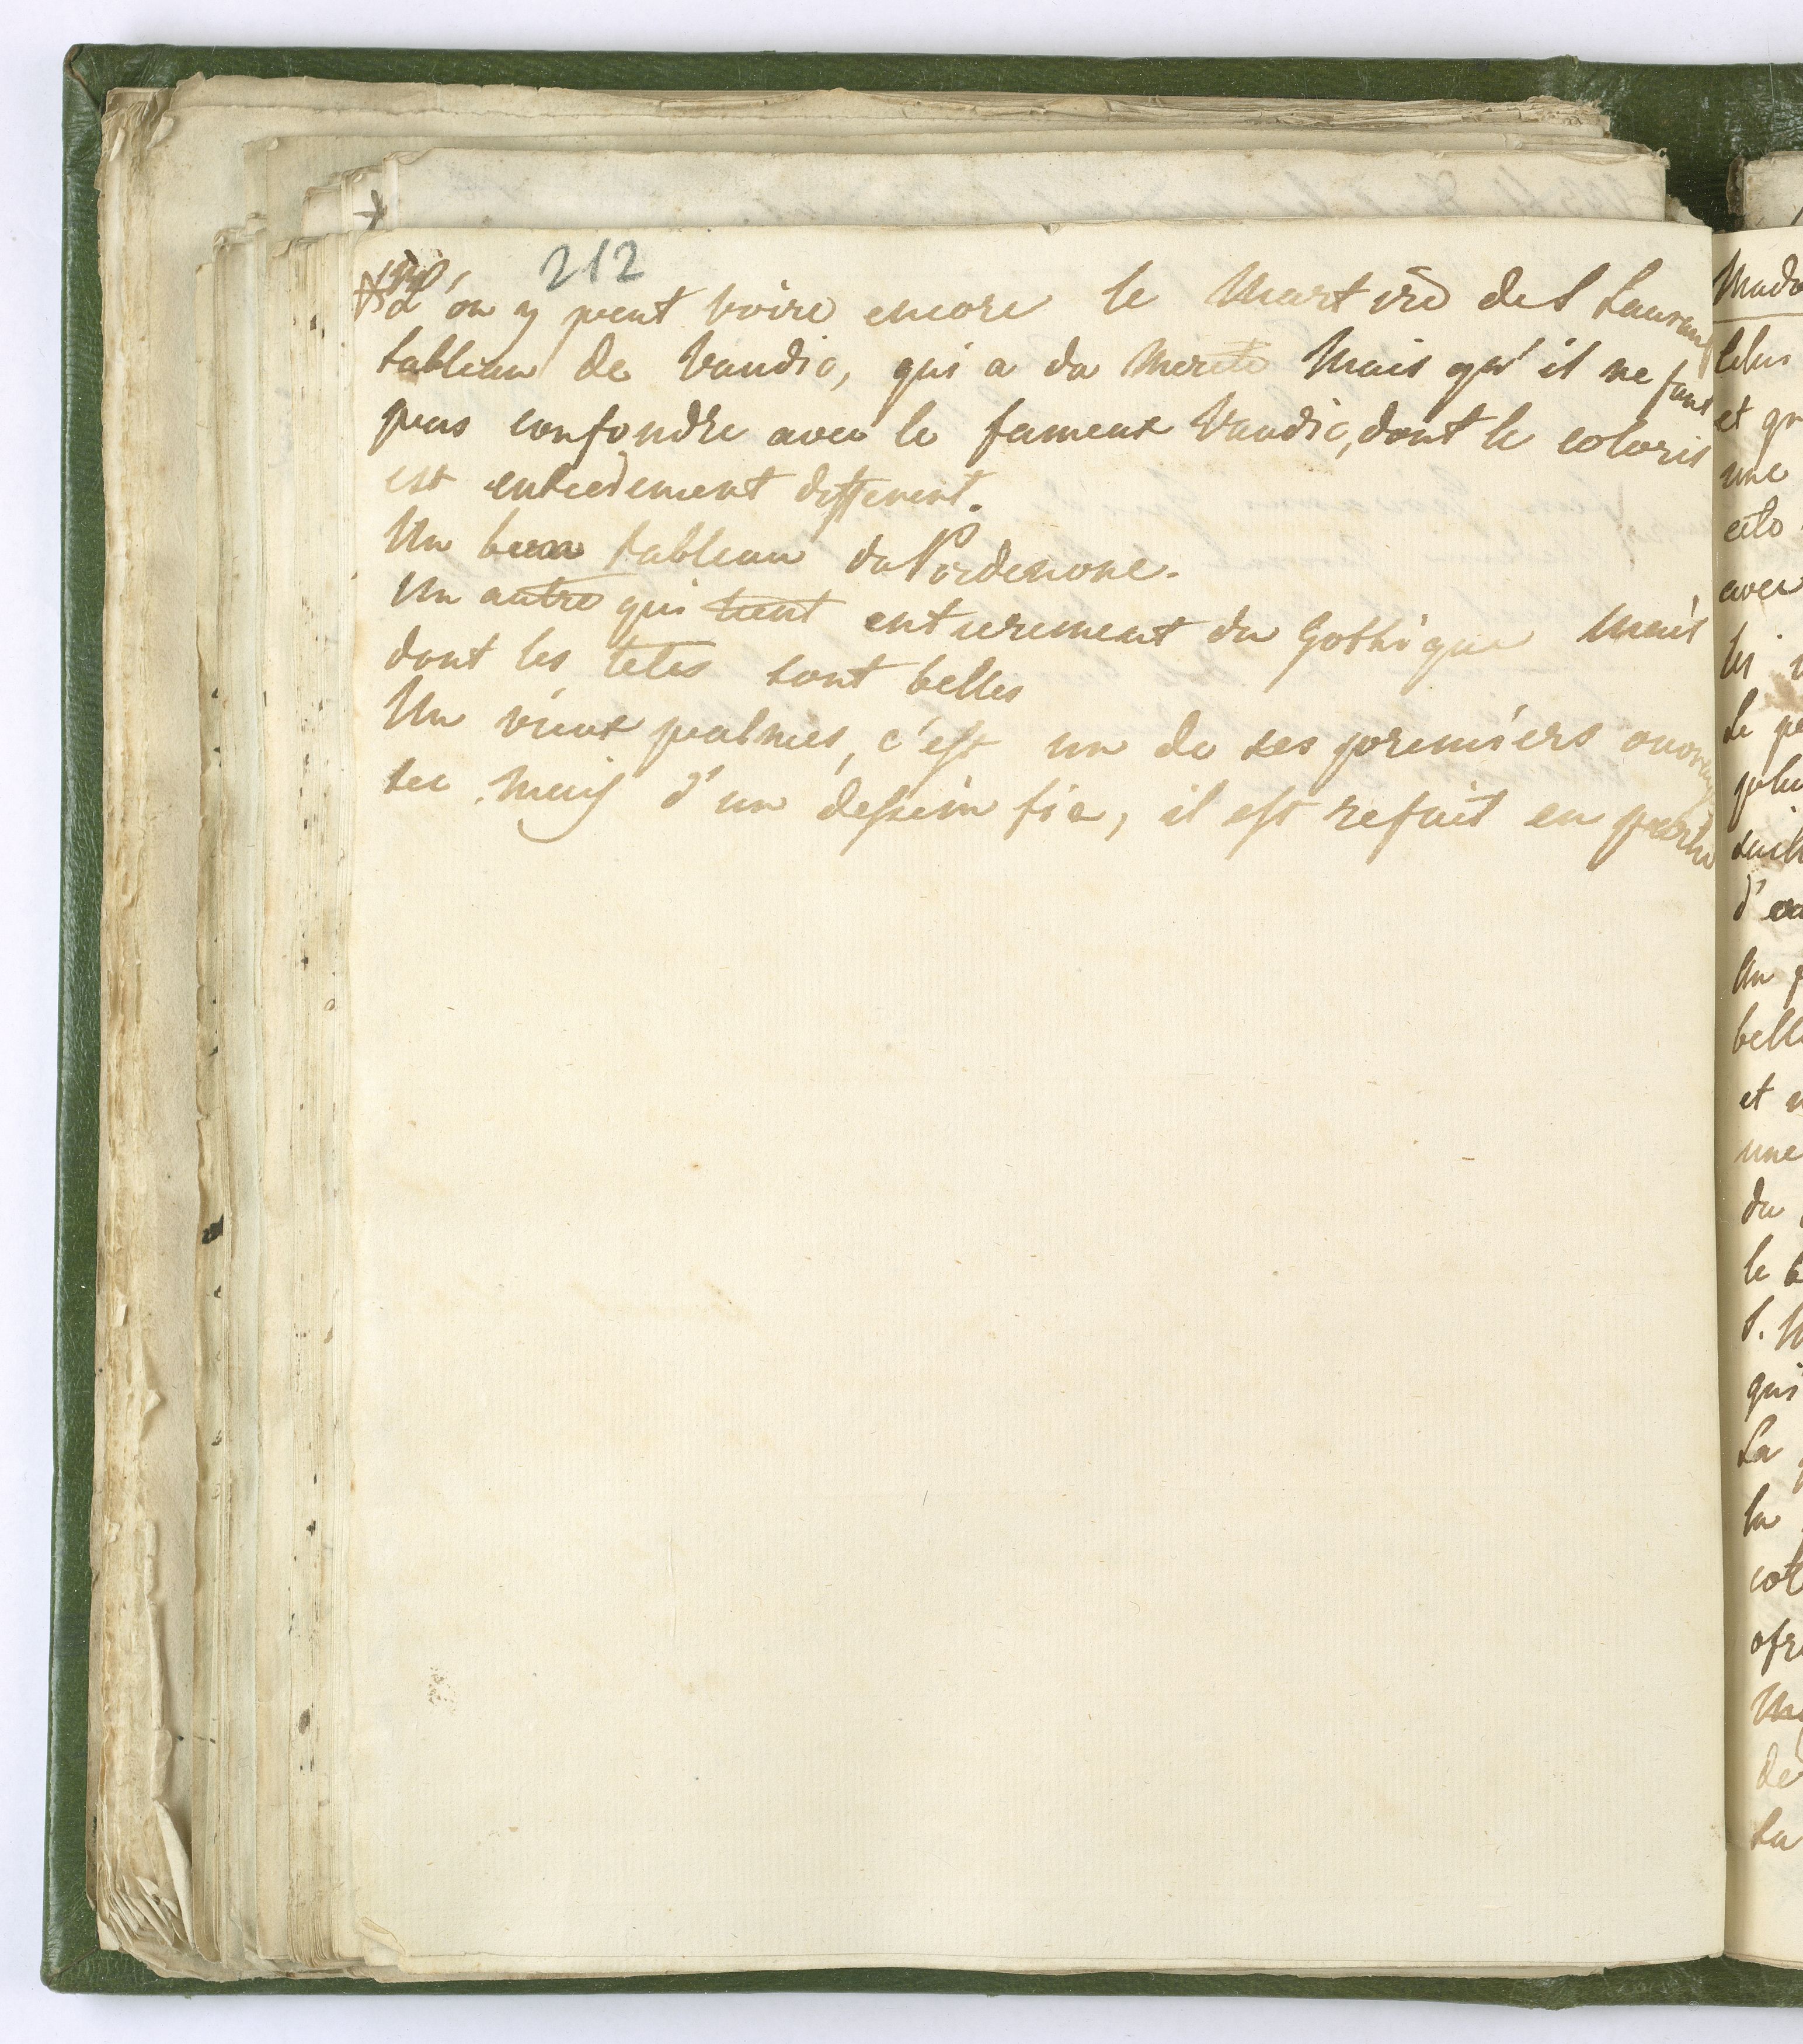 212
L'on y peut voire encore le Martire de S Laurant
tableau de Vandic, qui a du Merite Mais qu'il ne faut
pas confondre avec le fameux Vandic, dont le coloris
est entierement different.
Un beau tableau du Pordenone.
Un autre qui tient entierement du Gothique Mais
dont les tetes sont belles
Un vieux palmes, c'est un de ses premiers ouvrag
sec Mais d'un dessein fie, il est refait en partie
Mado
et
une
avec
le
d'
Un
belle
et
une
du
le
S.
qui
La
la
de
La